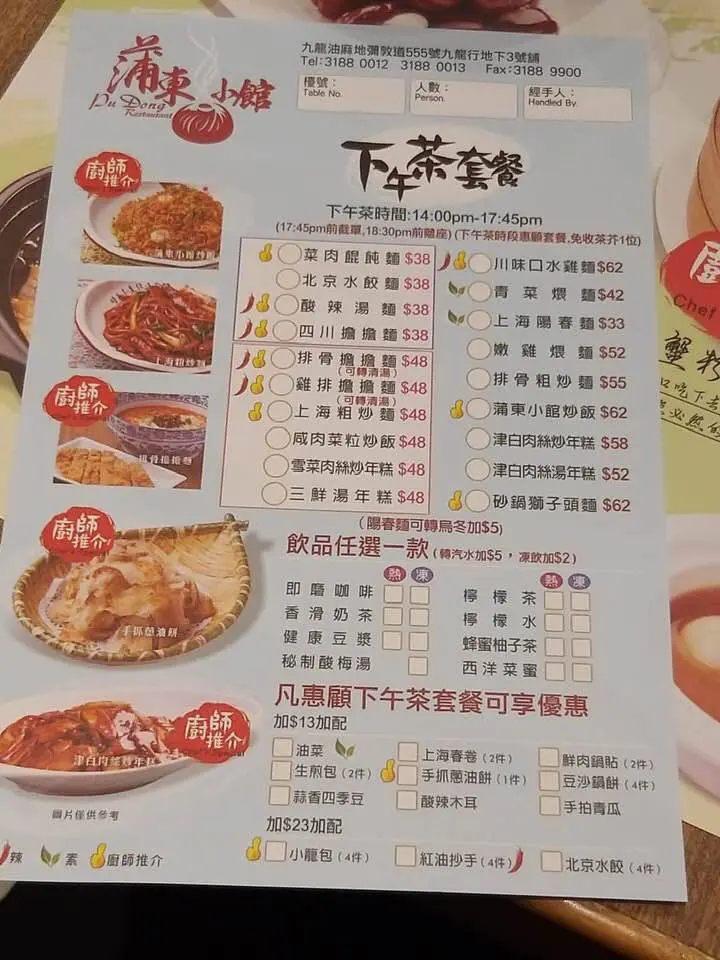 蒲東小館
Pu Dong
Restaurant
九龍油麻地彌敦道555號九龍行地下3號舖
Tel:3188 0012 3188 0013 Fax:3188 9900
檯號:
Table No.
人數:
Person.
經手人:
Handled By.
下午茶套餐
下午茶時間:14:00pm-17:45pm
(17:45pm前截單,18:30pm前離座) (下午茶時段惠顧套餐,免收茶芥1位)
廚師推介
蒲東小館炒飯
上海粗炒麵
廚師推介
排骨擔擔麵
廚師推介
手抓蔥油餅
廚師推介
津白肉絲炒年糕
圖片僅供參考
菜肉餛飩麵 $38
北京水餃麵 $38
酸辣湯麵 $38
四川擔擔麵 $38
排骨擔擔麵 $48
(可轉清湯)
雞排擔擔麵 $48
(可轉清湯)
上海粗炒麵 $48
咸肉菜粒炒飯 $48
雪菜肉絲炒年糕 $48
三鮮湯年糕 $48
川味口水雞麵 $62
青菜煨麵 $42
上海陽春麵 $33
嫩雞煨麵 $52
排骨粗炒麵 $55
蒲東小館炒飯 $62
津白肉絲炒年糕 $58
津白肉絲湯年糕 $52
砂鍋獅子頭麵 $62
(陽春麵可轉烏冬加$5)
飲品任選一款 (轉汽水加$5,凍飲加$2)
熱 凍
即磨咖啡
香滑奶茶
健康豆漿
秘制酸梅湯
熱 凍
檸檬茶
檸檬水
蜂蜜柚子茶
西洋菜蜜
凡惠顧下午茶套餐可享優惠
加$13加配
油菜 上海春卷 (2件) 鮮肉鍋貼 (2件)
生煎包 (2件) 手抓蔥油餅 (1件) 豆沙鍋餅 (4件)
蒜香四季豆 酸辣木耳 手拍青瓜
加$23加配
小籠包 (4件) 紅油抄手 (4件) 北京水餃 (4件)
辣 素 廚師推介
Chef
蟹粉